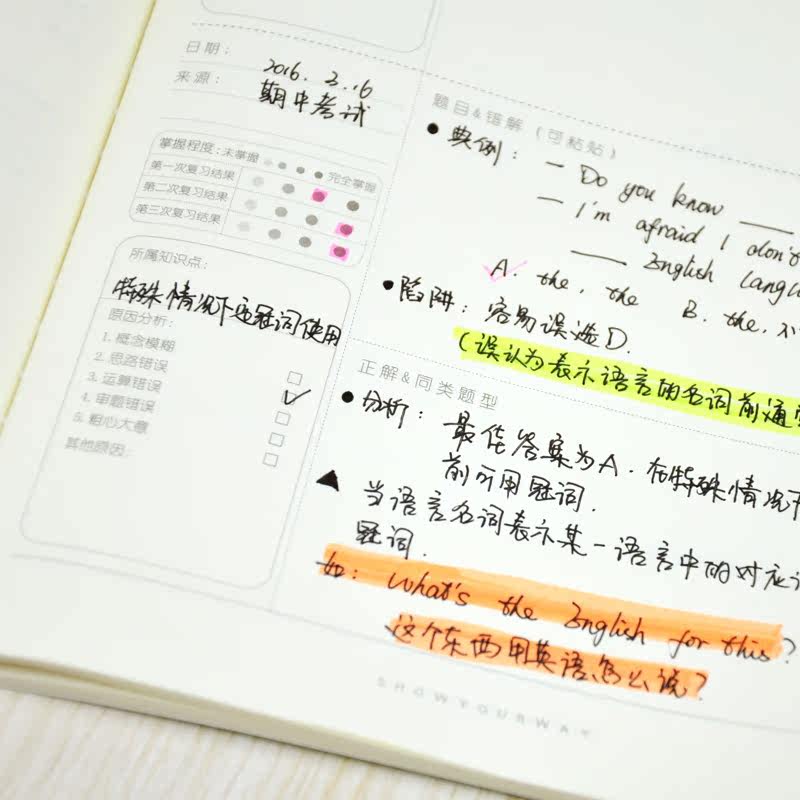 日期：
2016. 3.16
来源：
期中考试
掌握程度：未掌握 完全掌握
第一次复习结果
第二次复习结果
第三次复习结果
所属知识点：
特殊情况下定冠词使用
原因分析：
1. 概念模糊
2. 思路错误
3. 运算错误
4. 审题错误
5. 粗心大意
其他原因：
题目&错解（可粘贴）
典例： — Do you know
— I'm afraid I don't
English langu
A. the, the B. the, 不
陷阱：容易误选D.
（误认为表示语言的名词前通常
正解&同类题型
分析：最佳答案为A. 在特殊情况下
前可用冠词.
▲ 当语言名词表示某一语言中的对应词
冠词.
如：What's the English for this?
这个东西用英语怎么说？
SHOWYOURWAY